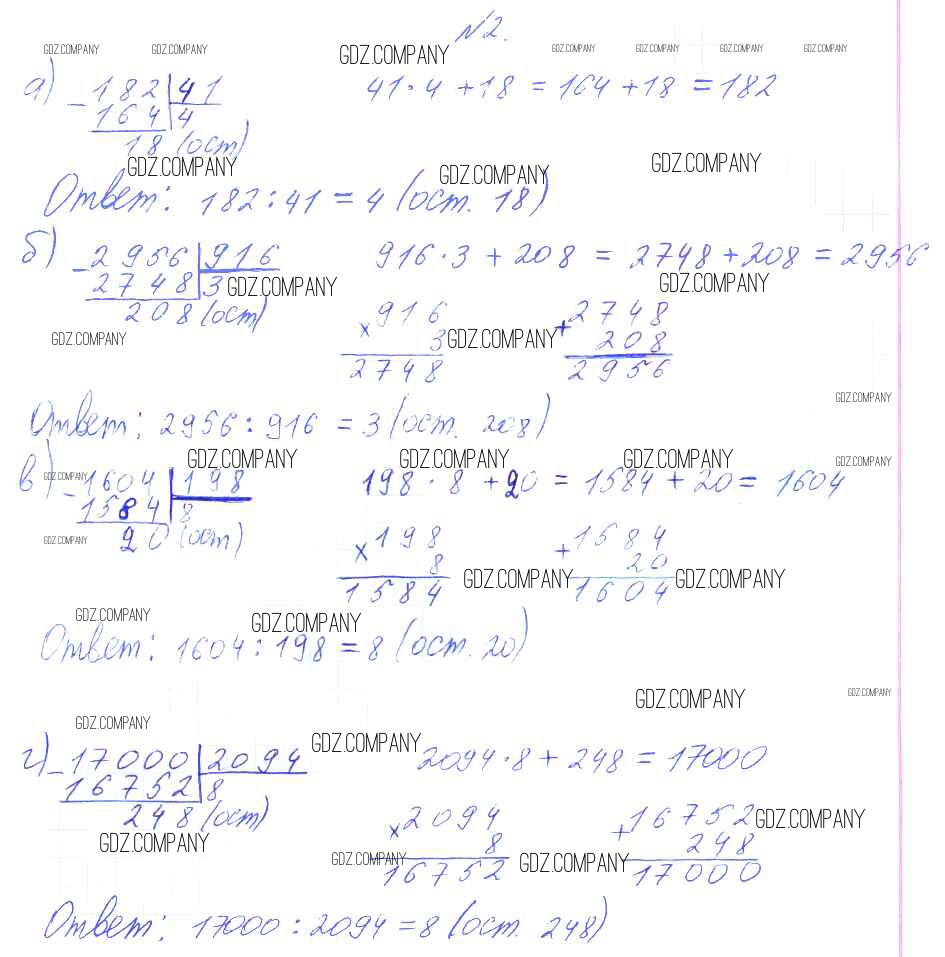 №2.
GDZ.COMPANY GDZ.COMPANY GDZ.COMPANY GDZ.COMPANY GDZ.COMPANY GDZ.COMPANY GDZ.COMPANY
а) - 182 | 41 41 · 4 + 18 = 164 + 18 = 182
164 | 4
18 (ост)
GDZ.COMPANY GDZ.COMPANY GDZ.COMPANY
Ответ: 182 : 41 = 4 (ост. 18)
б) - 2956 | 916 916 · 3 + 208 = 2748 + 208 = 2956
2748 | 3 GDZ.COMPANY GDZ.COMPANY
208 (ост) × 916 + 2748
GDZ.COMPANY 3 GDZ.COMPANY 208
2748 2956
GDZ.COMPANY
Ответ: 2956 : 916 = 3 (ост. 208)
GDZ.COMPANY GDZ.COMPANY GDZ.COMPANY GDZ.COMPANY
в) GDZ.COMPANY - 1604 | 198 198 · 8 + 20 = 1584 + 20 = 1604
1584 | 8
GDZ.COMPANY 20 (ост) × 198 + 1584
8 20
1584 GDZ.COMPANY 1604 GDZ.COMPANY
GDZ.COMPANY GDZ.COMPANY
Ответ: 1604 : 198 = 8 (ост. 20)
GDZ.COMPANY GDZ.COMPANY
GDZ.COMPANY GDZ.COMPANY
г) - 17000 | 2094 2094 · 8 + 248 = 17000
16752 | 8
248 (ост) × 2094 + 16752 GDZ.COMPANY
GDZ.COMPANY 8 248
GDZ.COMPANY 16752 GDZ.COMPANY 17000
Ответ: 17000 : 2094 = 8 (ост. 248)